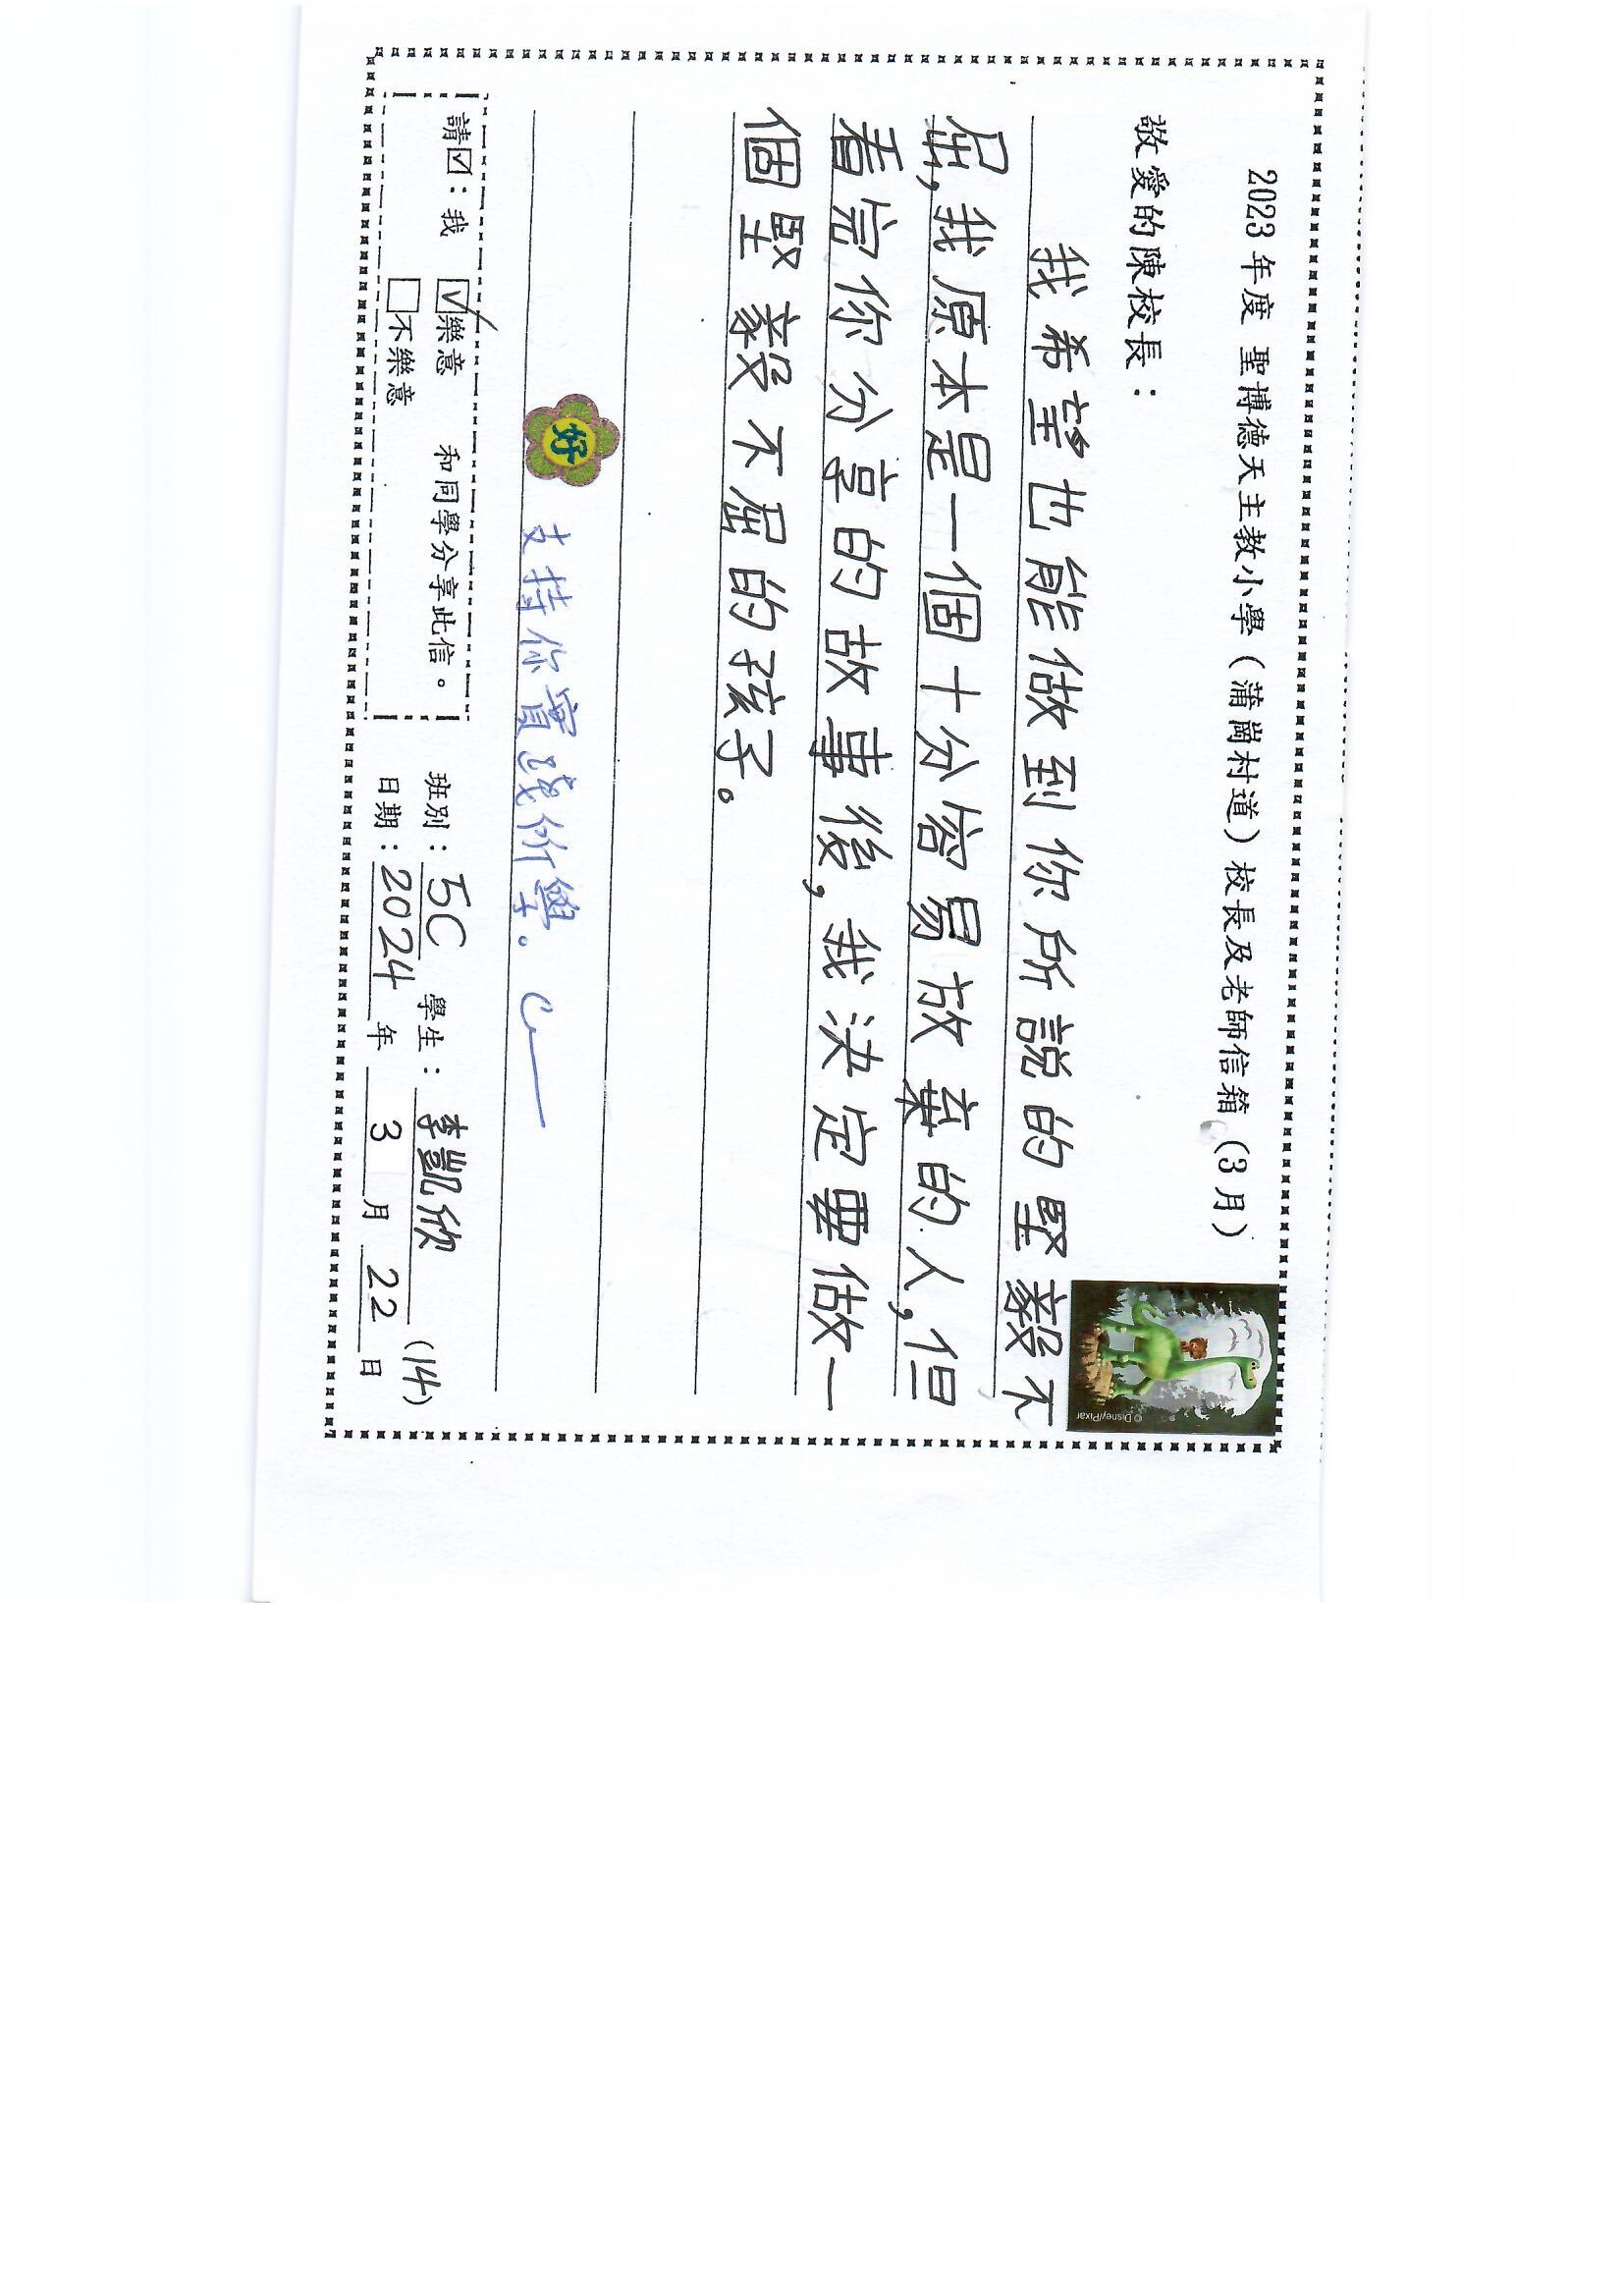 2023 年度 聖博德天主教小學（蒲崗村道）校長及老師信箱（3月）
敬愛的陳校長：
© Disney/Pixar
我希望也能做到你所說的堅毅不
屈,我原本是一個十分容易放棄的人,但
看完你分享的故事後,我決定要做一
個堅毅不屈的孩子。
好
支持你實踐所學。
請☑：我 ☑樂意 和同學分享此信。
□不樂意
班別：5C 學生：李凱欣 (14)
日期：2024 年 3 月 22 日